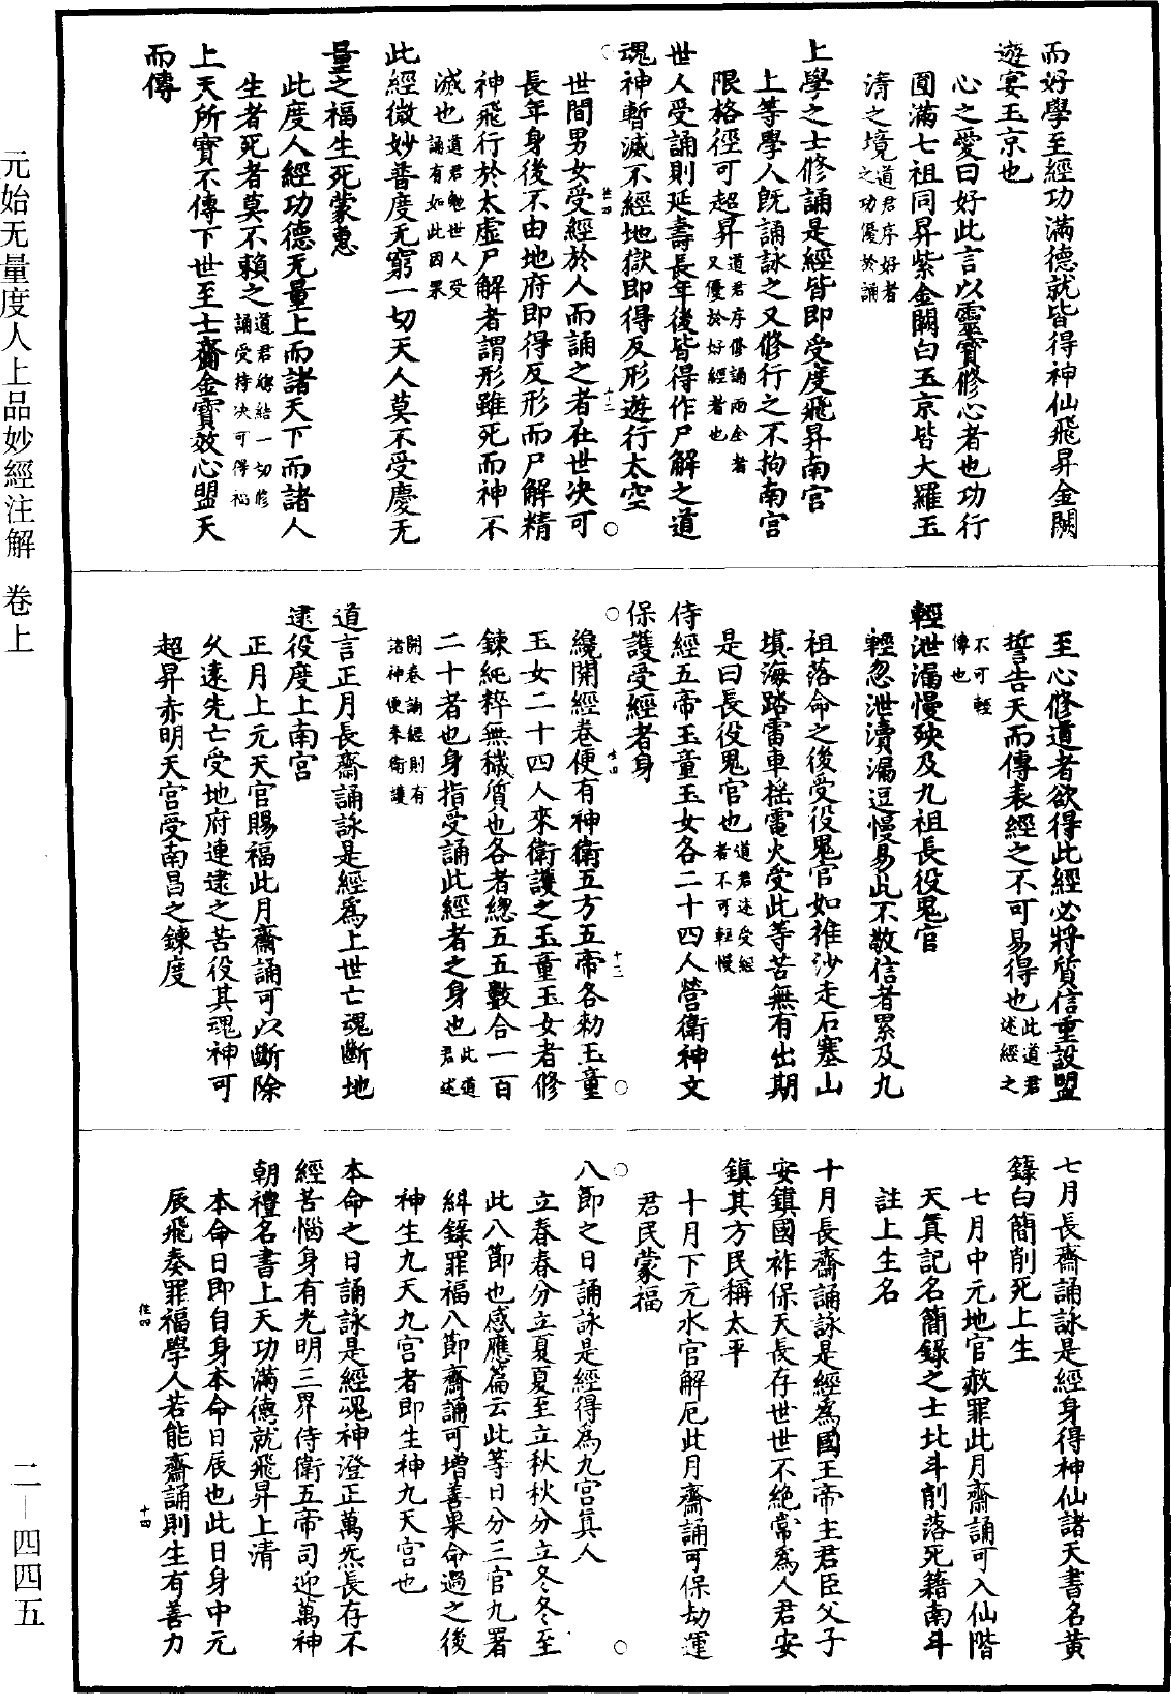 而好學至經功滿德就皆得神仙飛昇金闕
遊宴玉京也
心之愛曰好此言以靈寶修心者也功行
圓滿七祖同昇紫金闕白玉京皆大羅玉
清之境道君序好者之功優於誦
上學之士修誦是經皆即受度飛昇南宮
上等學人既誦詠之又修行之不拘南宮
限格徑可超昇道君序修誦兩全者又優於好經者也
世人受誦則延壽長年後皆得作尸解之道
魂神暫滅不經地獄即得反形遊行太空
世間男女受經於人而誦之者在世決可
長年身後不由地府即得反形而尸解精
神飛行於太虛尸解者謂形雖死而神不
滅也道君勉世人受誦有如此因果
此經微妙普度无窮一切天人莫不受慶无
量之福生死蒙惠
此度人經功德无量上而諸天下而諸人
生者死者莫不賴之道君總結一切修誦受持決可得福
上天所寶不傳下世至士齎金寶效心盟天
而傳
至心修道者欲得此經必將質信重設盟
誓告天而傳表經之不可易得也此道君述經之
不可輕傳也
輕泄漏慢殃及九祖長役鬼官
輕忽泄瀆漏逗慢易此不敬信者累及九
祖落命之後受役鬼官如推沙走石塞山
填海踏雷車搖電火受此等苦無有出期
是曰長役鬼官也道君述受經者不可輕慢
侍經五帝玉童玉女各二十四人營衛神文
保護受經者身
纔開經卷便有神衛五方五帝各勑玉童
玉女二十四人來衛護之玉童玉女者修
鍊純粹無穢質也各者總五五數合一百
二十者也身指受誦此經者之身也此道君述
開卷誦經則有諸神便來衛護
道言正月長齋誦詠是經爲上世亡魂斷地
逮役度上南宮
正月上元天官賜福此月齋誦可以斷除
久遠先亡受地府連逮之苦役其魂神可
超昇赤明天宮受南昌之鍊度
七月長齋誦詠是經身得神仙諸天書名黃
籙白簡削死上生
七月中元地官赦罪此月齋誦可入仙階
天眞記名簡錄之士北斗削落死籍南斗
註上生名
十月長齋誦詠是經爲國王帝主君臣父子
安鎮國祚保天長存世世不絕常爲人君安
鎮其方民稱太平
十月下元水官解厄此月齋誦可保劫運
君民蒙福
八節之日誦詠是經得爲九宮眞人
立春春分立夏夏至立秋秋分立冬冬至
此八節也感應篇云此等日分三官九署
糾錄罪福八節齋誦可增善果命過之後
神生九天九宮者即生神九天宮也
本命之日誦詠是經魂神澄正萬炁長存不
經苦惱身有光明三界侍衛五帝司迎萬神
朝禮名書上天功滿德就飛昇上清
本命日即自身本命日辰也此日身中元
辰飛奏罪福學人若能齋誦則生有善力
元始无量度人上品妙經注解 卷上
二—四四五